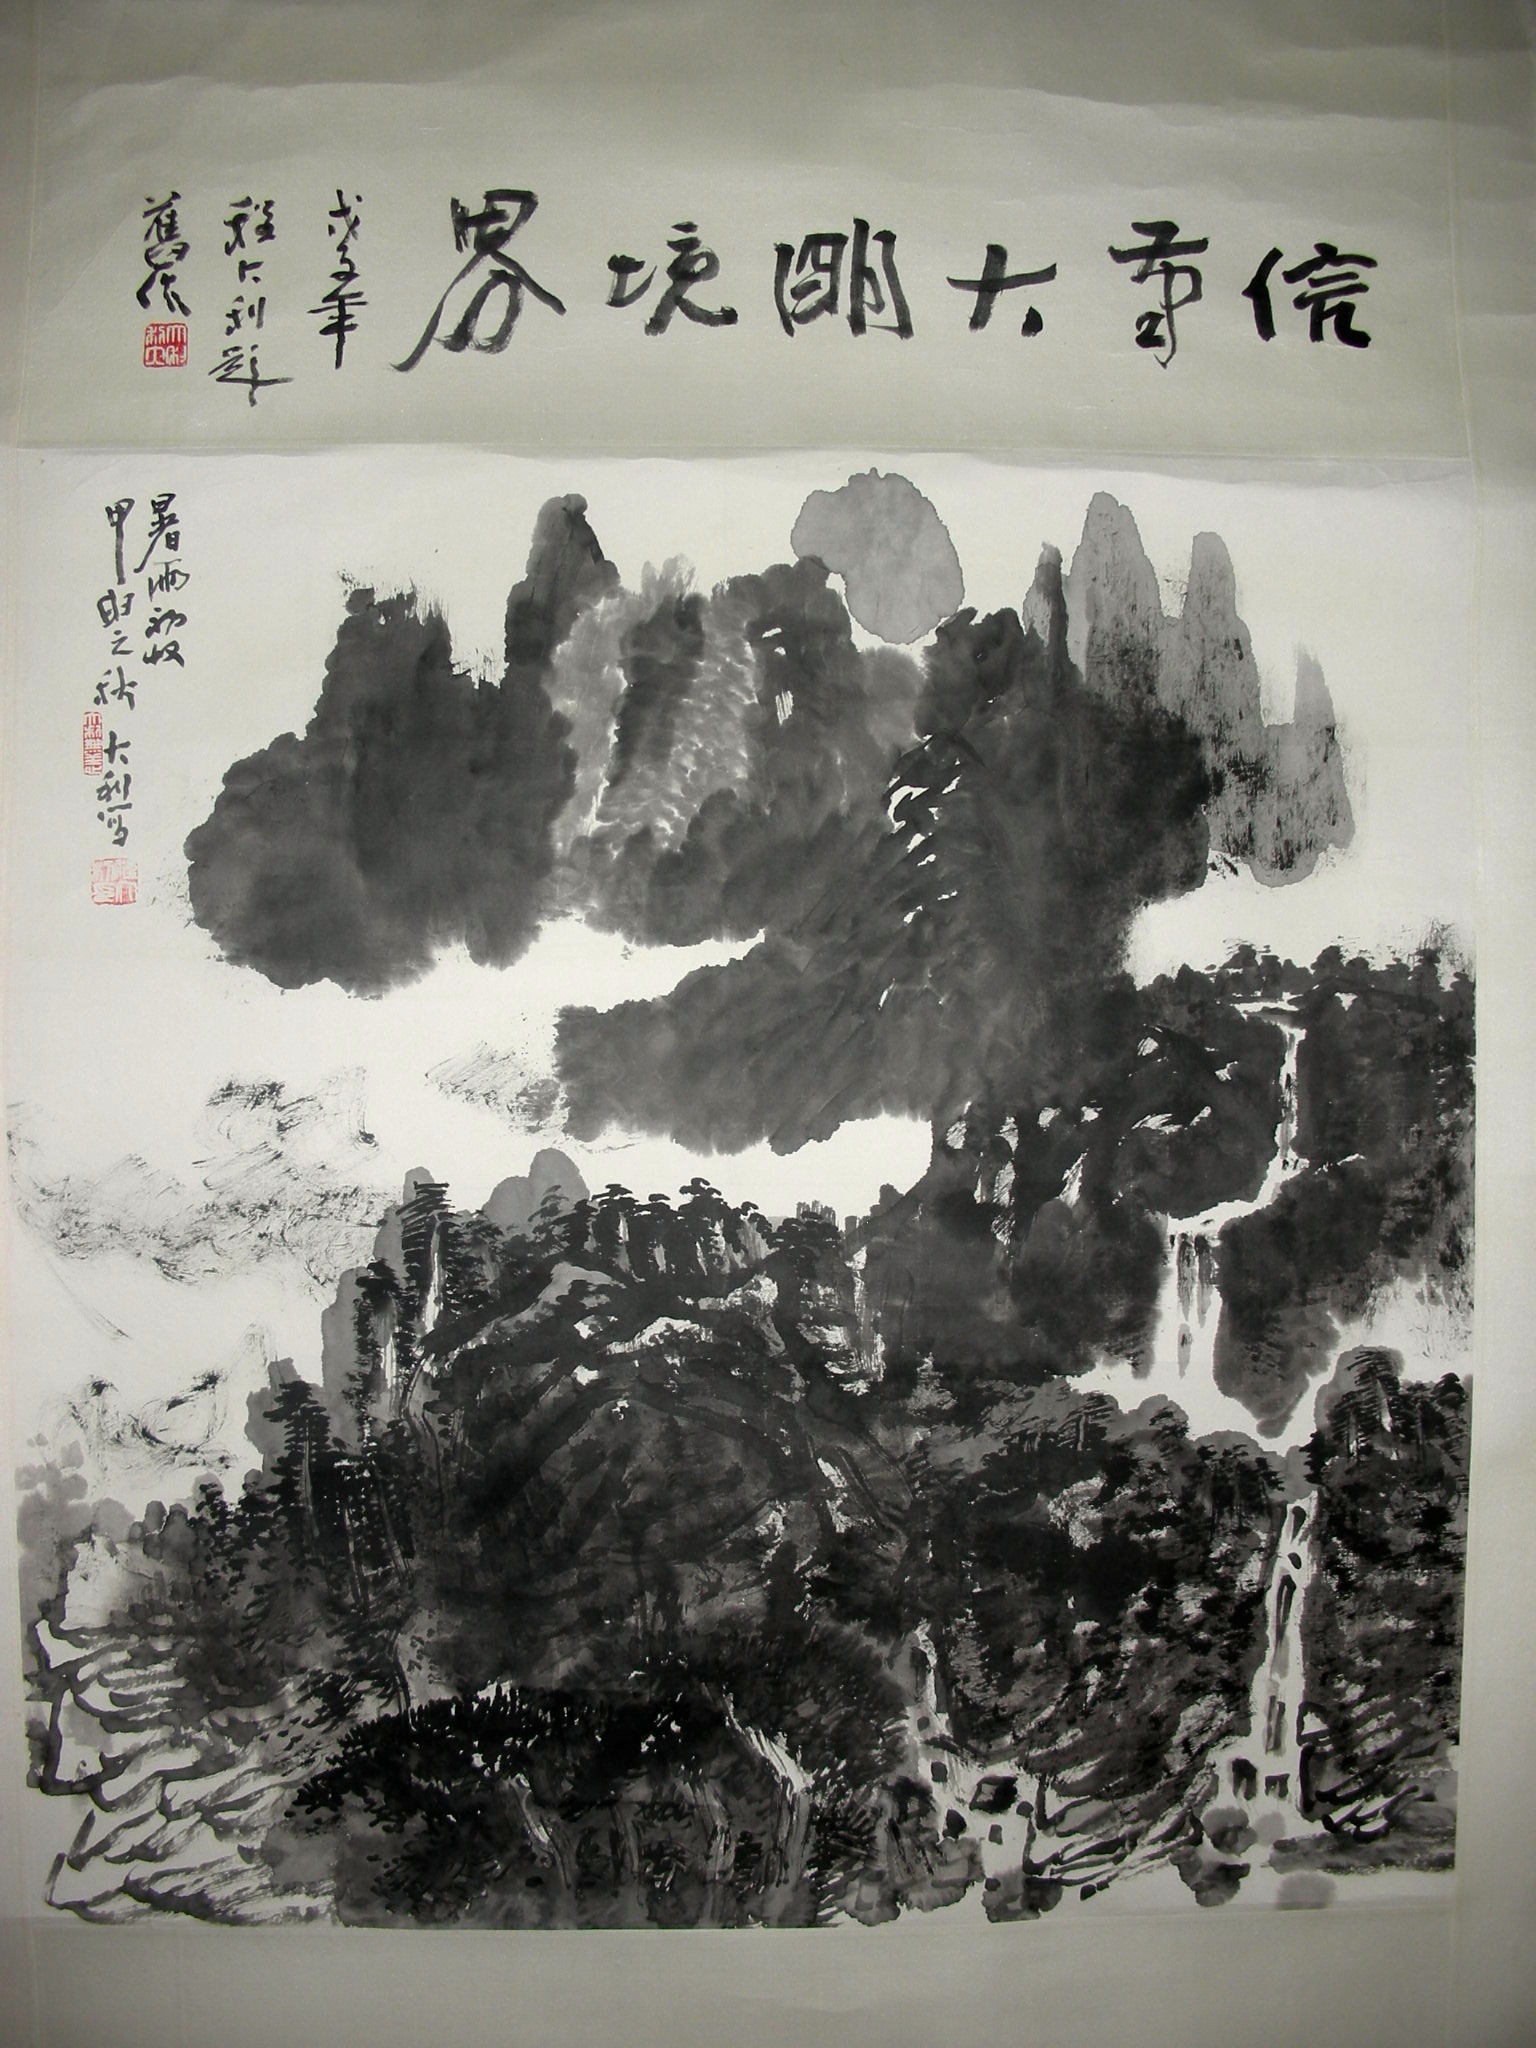 信可大明境界
戊子年
程大利題
舊作
暑雨初收
甲申之秋 大利寫